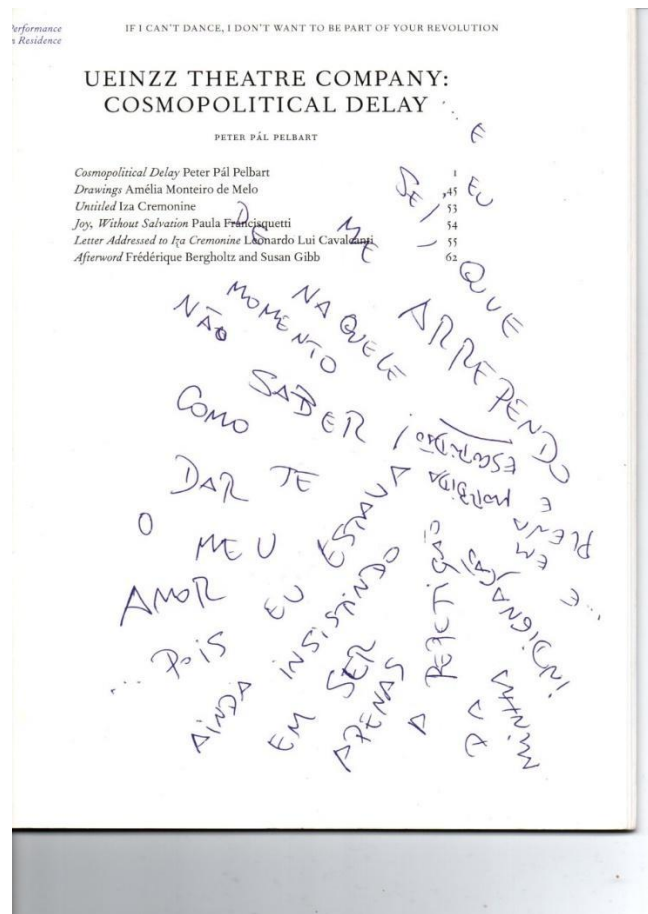 Performance
n Residence
IF I CAN'T DANCE, I DON'T WANT TO BE PART OF YOUR REVOLUTION
UEINZZ THEATRE COMPANY:
COSMOPOLITICAL DELAY
PETER PÁL PELBART
Cosmopolitical Delay Peter Pál Pelbart 1
Drawings Amélia Monteiro de Melo 45
Untitled Iza Cremonine 53
Joy, Without Salvation Paula Francisquetti 54
Letter Addressed to Iza Cremonine Leonardo Lui Cavalcanti 55
Afterword Frédérique Bergholtz and Susan Gibb 62
... E
EU
SEI, QUE
DE ME ARREPENDO
NAQUELE
MOMENTO
NÃO
SABER
COMO
DAR TE
O
MEU
AMOR
... POIS EU ESTAVA
AINDA INSISTINDO
EM SER
APENAS
A REACTIGAÕ
DA
MINHA
INDIGNAÇÃO
... E
EM
PLENA
E
MORBIDA
ESCURIDÃO